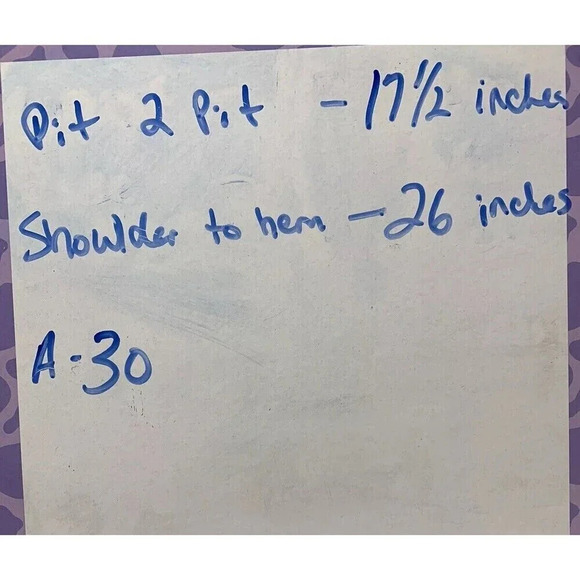 Pit 2 Pit - 17 1/2 inches
Shoulder to hem - 26 inches
A-30